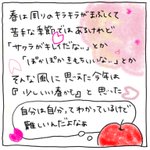 春は周りのキラキラがまぶしくて
苦手な季節ではあるけれど
「サクラがキレイだな…」とか
「ぽかぽかきもちいいな…」とか
そんな風に思えた今年は
『少しいい春かも』と思った
自分は自分ってわかっているけど
難しいんだよなぁ